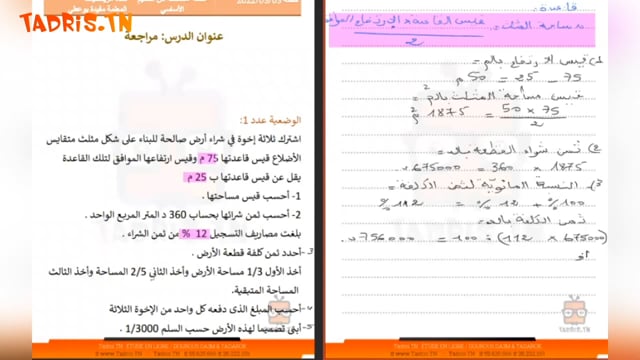 TADRIS.TN
الأساسي
2022/03/03
عنوان الدرس: مراجعة
الوضعية عدد 1:
اشترك ثلاثة إخوة في شراء أرض صالحة للبناء على شكل مثلث متقايس
الأضلاع قيس قاعدتها 75 م وقيس ارتفاعها الموافق لتلك القاعدة
يقل عن قيس قاعدتها ب 25 م
1- أحسب قيس مساحتها .
2- أحسب ثمن شرائها بحساب 360 د المتر المربع الواحد .
بلغت مصاريف التسجيل 12 % من ثمن الشراء .
3- أحدد ثمن كلفة قطعة الأرض .
أخذ الأول 1/3 مساحة الأرض وأخذ الثاني 2/5 المساحة وأخذ الثالث
المساحة المتبقية.
4- أحسب المبلغ الذى دفعه كل واحد من الإخوة الثلاثة
5- أبني تصميما لهذه الأرض حسب السلم 1/3000
قاعدة:
مساحة المثلث = قيس القاعدة × الارتفاع الموافق
2
1) قيس الارتفاع بالم =
75 – 25 = 50 م
قيس مساحة المثلث بالم² =
50 × 75 = 1875 م²
2
2) ثمن شراء القطعة بالد =
1875 × 360 = 675000 د
3) النسبة المائوية لثمن الكلفة =
100% + 12% = 112%
ثمن الكلفة بالد =
(675000 × 112) ÷ 100 = 756000 د
أو